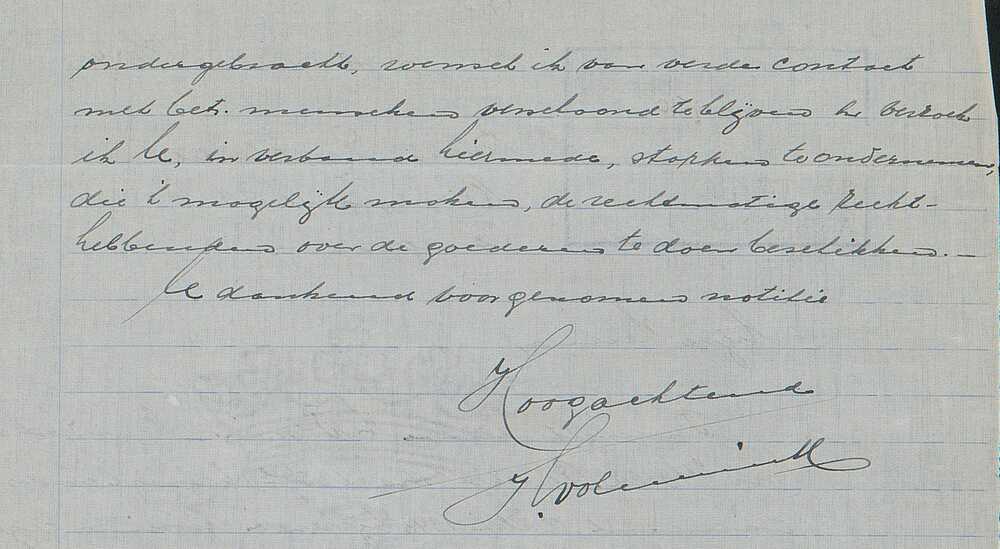 ondergebracht, wensch ik van verde contact
met betr. menschen verschoond te blijven en verzoek
ik U, in verband hiermede, stappen te ondernemen,
die 't mogelijk maken, de rechtmatige recht-
hebbenden over de goederen te doen beschikken. —
U dankend voor genomen notitie
Hoogachtend